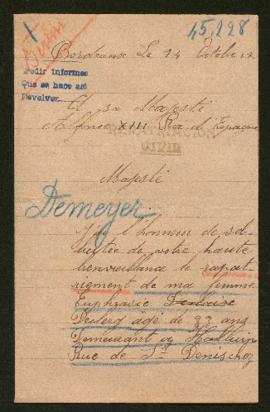 45,228
Bordeaux Le 14 Octobre
Pedir informes
Que se hace así
Devolver.
A sa Majesté
Alfonso XIII Roi d'Espagne
CIVIL
Majesté
Demeyer
J'ai l'honneur de sol-
liciter de votre haute
bienveillance le rapat-
riement de ma femme
Euphrasie
agé de 22 ans
Demeurant a
Rue de St Denis chez